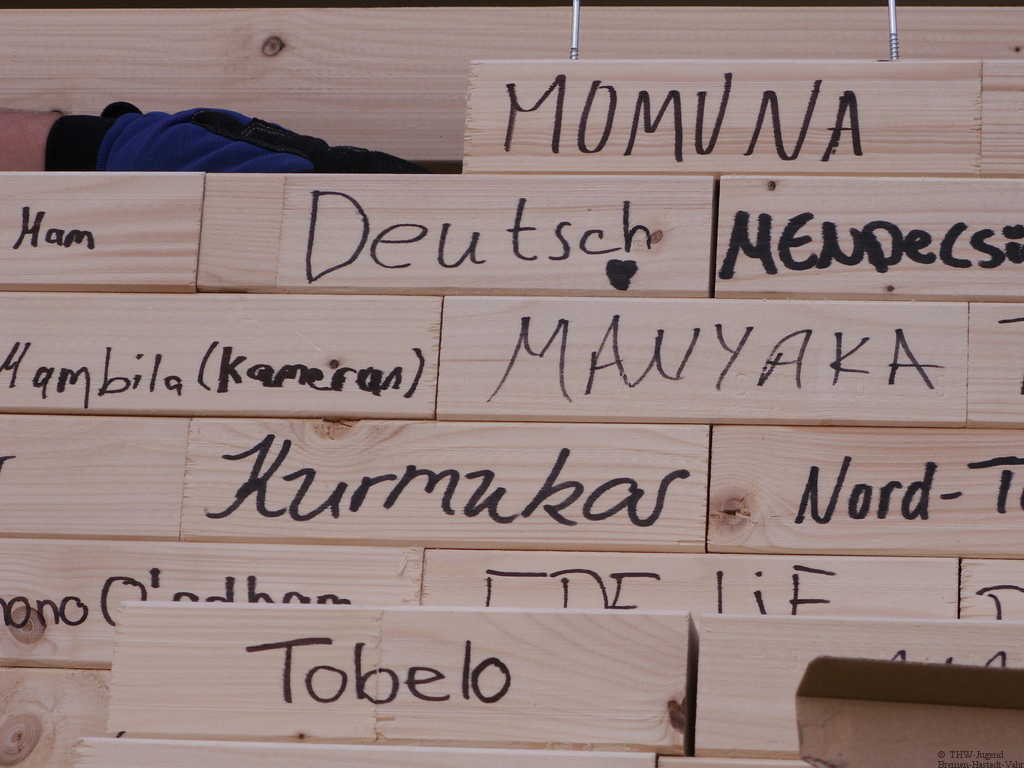 MOMUNA
Ham
Deutsch
MENDECS
Mambila (Kameran)
MANYAKA
Kurmukar
Nord-T
Tobelo
© THW-Jugend
Bremen-Hastedt-Vahr